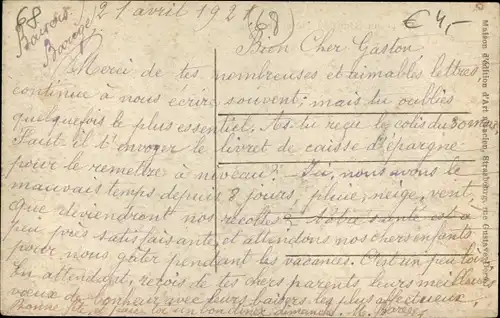 68
Baisers
Barège
21 avril 1921
(68)
€ 4,-
Bien Cher Gaston
Merci de tes nombreuses et aimables lettres
continue à nous écrire souvent; mais tu oublies
quelquefois le plus essentiel. As-tu reçu le colis du 30 mars
Faut il t'envoyer le livret de caisse d'épargne
pour le remettre à niveau? - Ici, nous avons le
mauvais temps depuis 8 jours, pluie, neige, vent,
que deviendront nos récoltes? - Notre santé est à
peu près satisfaisante, et attendons nos chers enfants
pour nous gâter pendant les vacances. C'est un peu loin
En attendant, reçois de tes chers parents leurs meilleurs
vœux de bonheur avec leurs baisers les plus affectueux
Bonne fête et pour toi un bon dimanche. - M. Barège
Maison d'édition d'Art Alsacien, Strasbourg, rue Gustave Doré